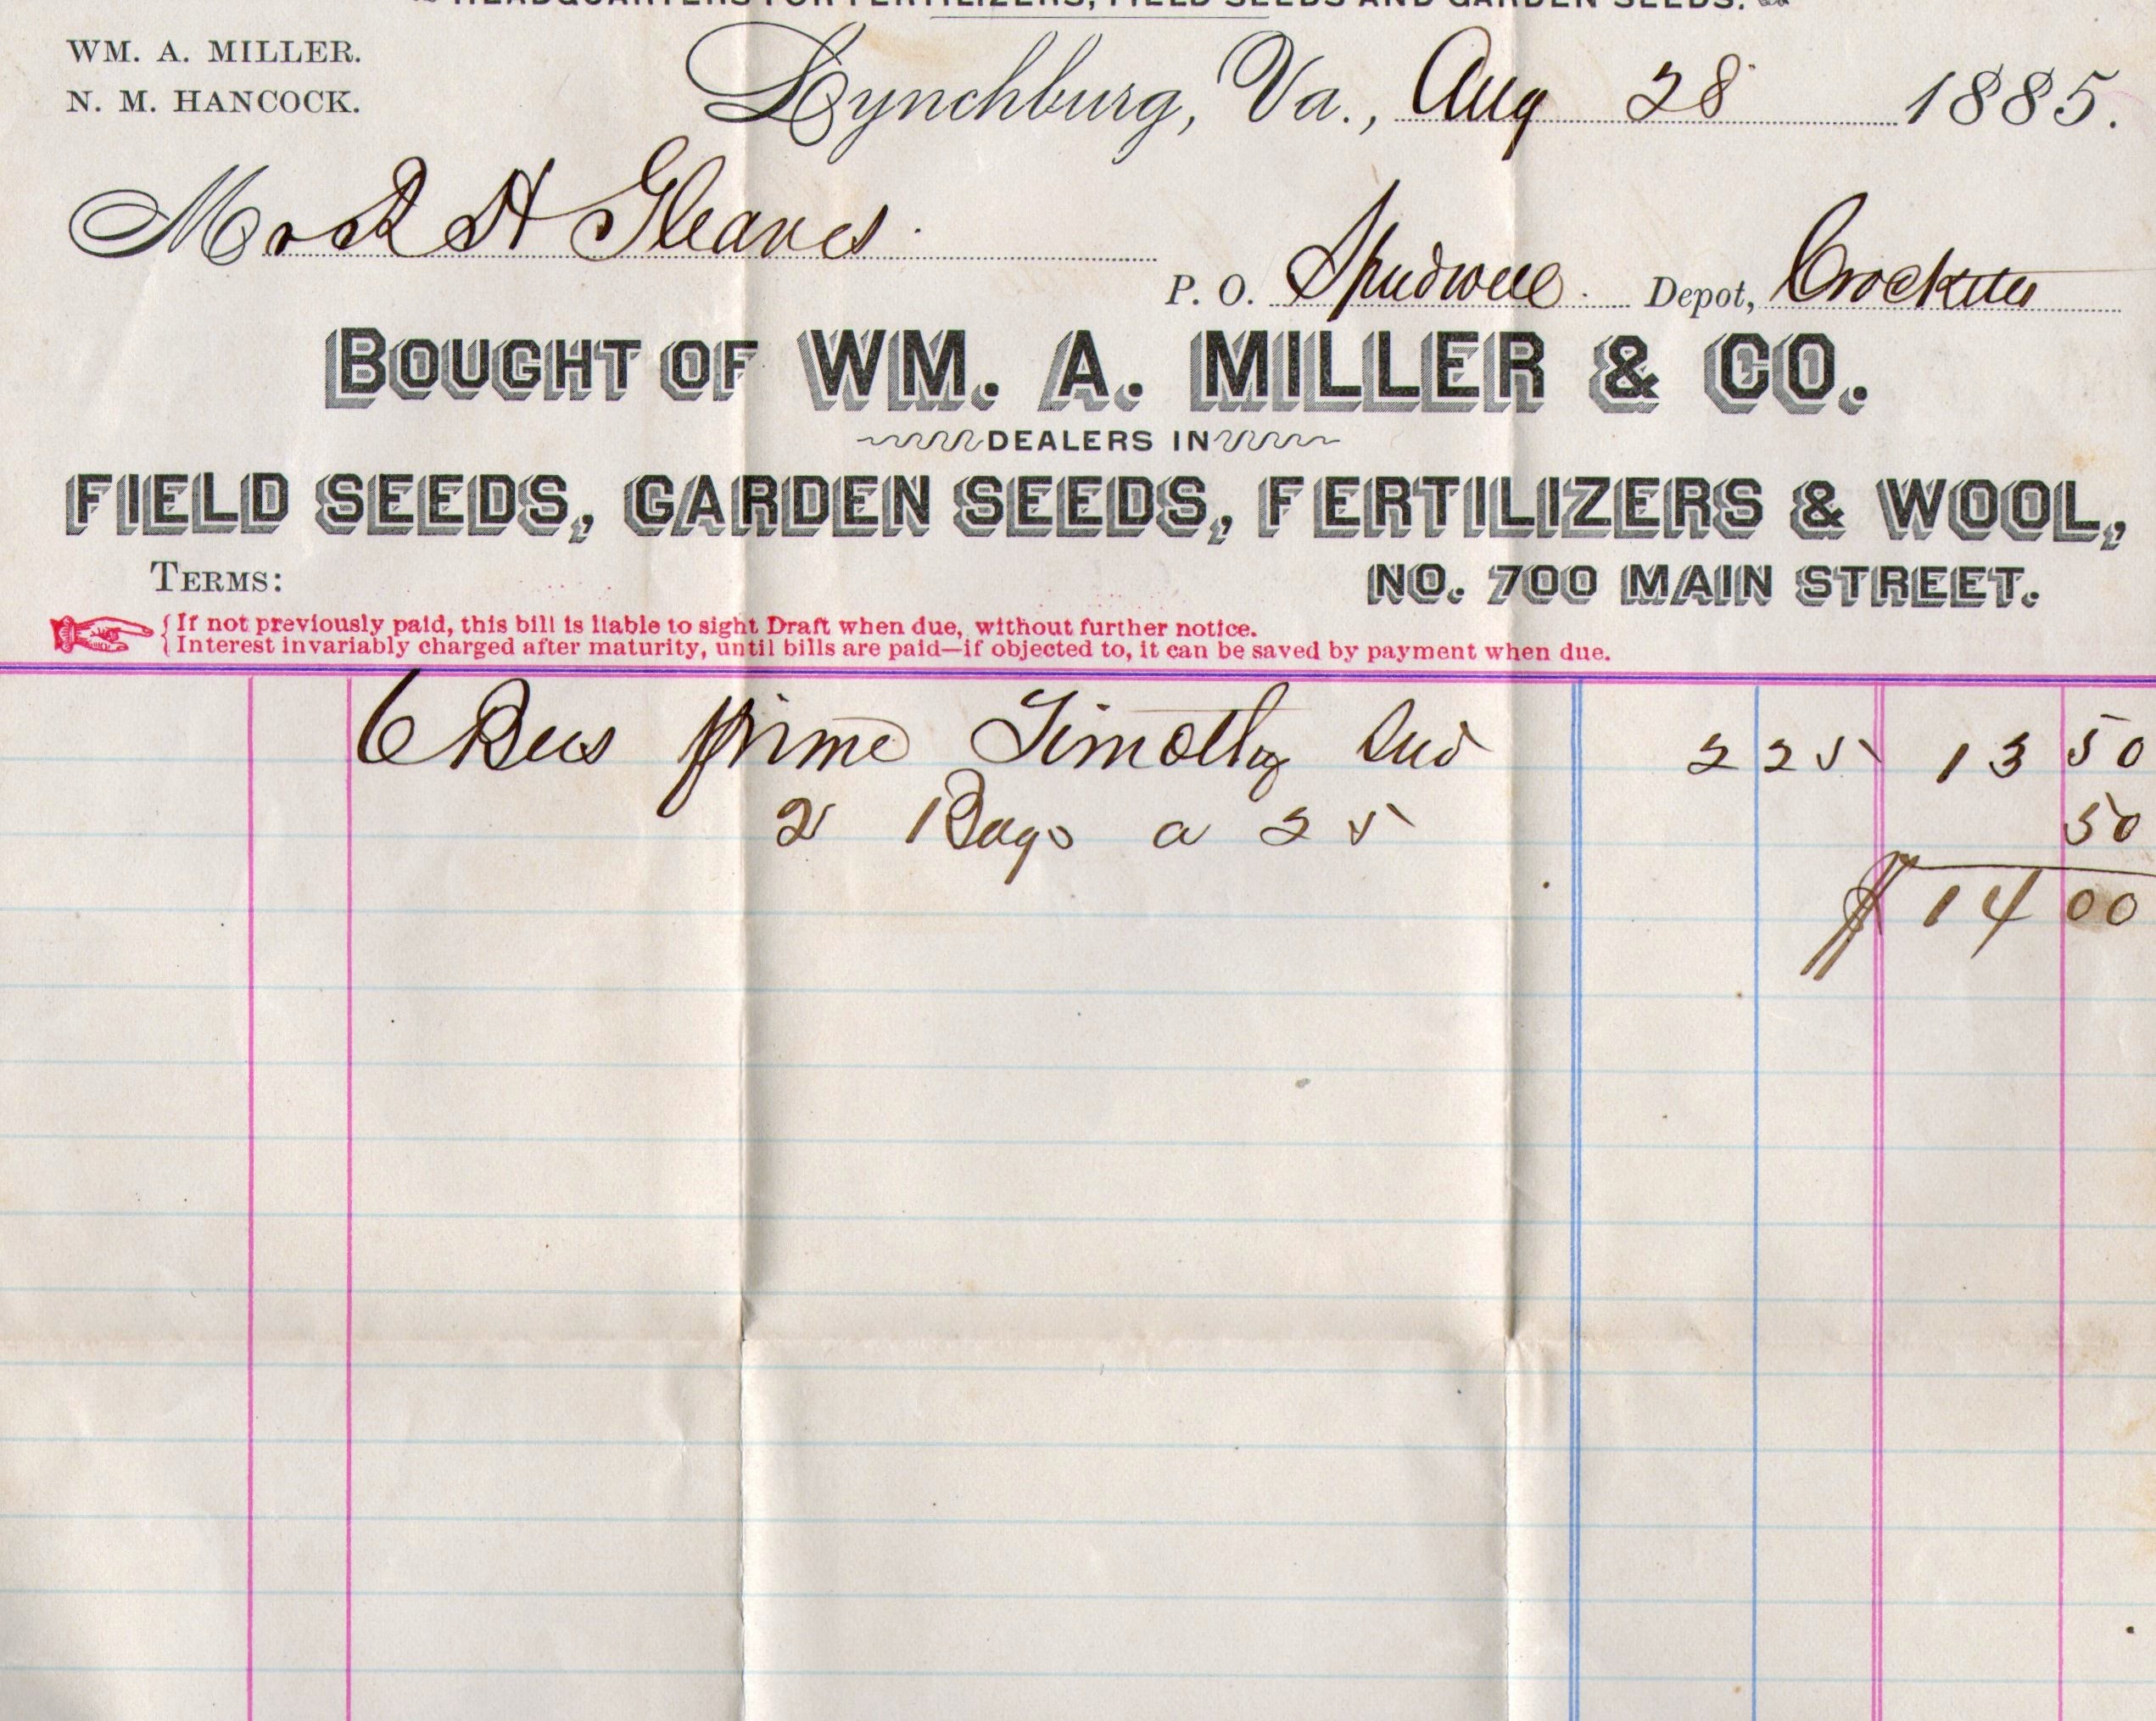 HEADQUARTERS FOR FERTILIZERS, FIELD SEEDS AND GARDEN SEEDS.
WM. A. MILLER.
N. M. HANCOCK.
Lynchburg, Va., Aug 28 1885.
Mr R H Gleaves.
P. O. Spudwell. Depot, Crocketts
BOUGHT OF WM. A. MILLER & CO.
DEALERS IN
FIELD SEEDS, GARDEN SEEDS, FERTILIZERS & WOOL,
TERMS: NO. 700 MAIN STREET.
If not previously paid, this bill is liable to sight Draft when due, without further notice.
Interest invariably charged after maturity, until bills are paid—if objected to, it can be saved by payment when due.
6 Bus prime Timothy Seed 2 25 13 50
2 Bags a 25 50
$ 14 00